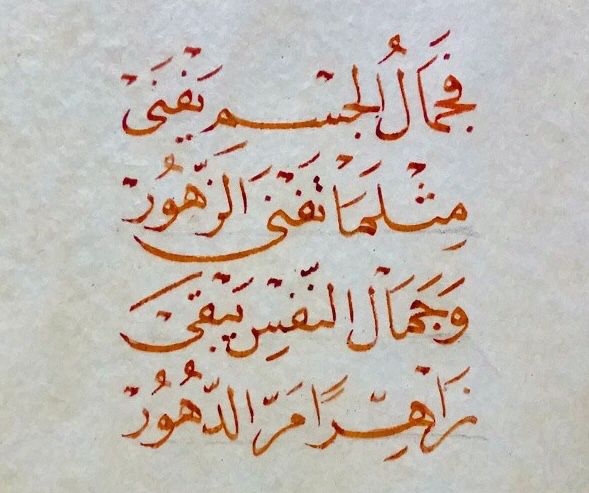 فَجَمَالُ الجِسْمِ يَفْنَى
مِثْلَمَا تَفْنَى الزُّهُورْ
وَجَمَالُ النَّفْسِ يَبْقَى
زَاهِرًا مَرَّ الدُّهُورْ